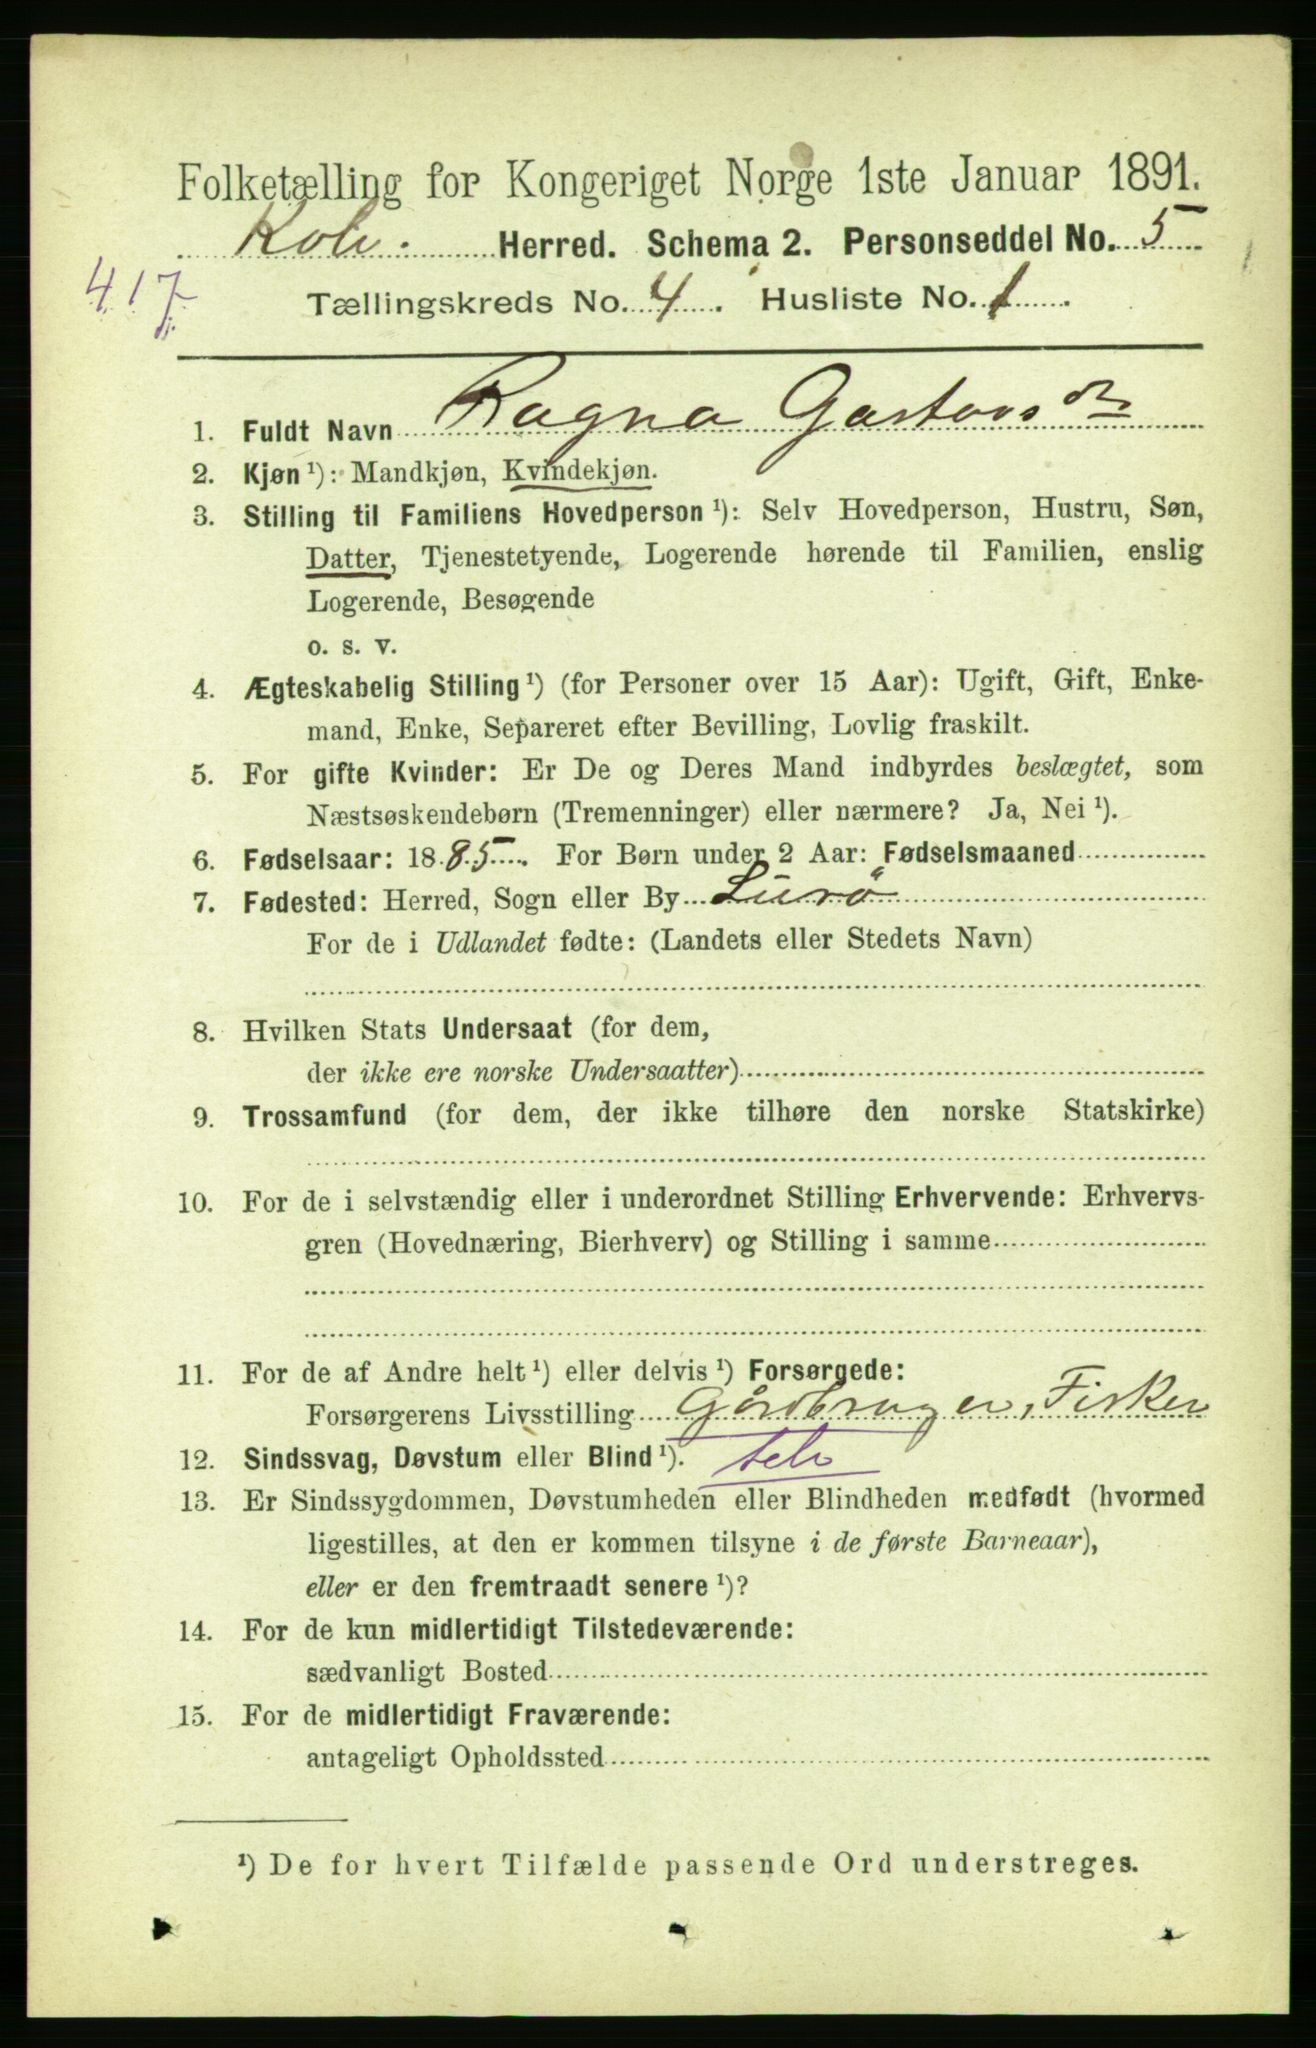 Folketælling for Kongeriget Norge 1ste Januar 1891.
Herred. Schema 2. Personseddel No. 5
417
Tællingskreds No. 4. Husliste No. 1
1. Fuldt Navn Ragna Gastavs dr
2. Kjøn ¹): Mandkjøn, Kvindekjøn.
3. Stilling til Familiens Hovedperson ¹): Selv Hovedperson, Hustru, Søn,
Datter, Tjenestetyende, Logerende hørende til Familien, enslig
Logerende, Besøgende
o. s. v.
4. Ægteskabelig Stilling ¹) (for Personer over 15 Aar): Ugift, Gift, Enke-
mand, Enke, Separeret efter Bevilling, Lovlig fraskilt.
5. For gifte Kvinder: Er De og Deres Mand indbyrdes beslægtet, som
Næstsøskendebørn (Tremenninger) eller nærmere? Ja, Nei ¹).
6. Fødselsaar: 1885. For Børn under 2 Aar: Fødselsmaaned
7. Fødested: Herred, Sogn eller By Lurö
For de i Udlandet fødte: (Landets eller Stedets Navn)
8. Hvilken Stats Undersaat (for dem,
der ikke ere norske Undersaatter)
9. Trossamfund (for dem, der ikke tilhøre den norske Statskirke)
10. For de i selvstændig eller i underordnet Stilling Erhvervende: Erhvervs-
gren (Hovednæring, Bierhverv) og Stilling i samme
11. For de af Andre helt ¹) eller delvis ¹) Forsørgede:
Forsørgerens Livsstilling Gårdbruger, Fisker
12. Sindssvag, Døvstum eller Blind ¹).
13. Er Sindssygdommen, Døvstumheden eller Blindheden medfødt (hvormed
ligestilles, at den er kommen tilsyne i de første Barneaar),
eller er den fremtraadt senere ¹)?
14. For de kun midlertidigt Tilstedeværende:
sædvanligt Bosted
15. For de midlertidigt Fraværende:
antageligt Opholdssted
¹) De for hvert Tilfælde passende Ord understreges.